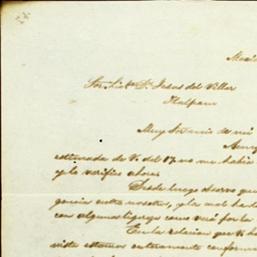 Sor. Lic. Dn. Jesus del Villar
Tlalpam
Muy Sor. mio de mi
estimada de V. del 17 no me habia
y lo verifico ahora.
Desde luego observo que
gancia entre nosotros, y la mal
con algunos como verá por la
En la relacion que V. h
vista estamos enteramente conform